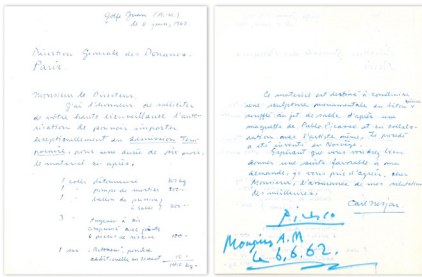 Golfe Juan (A.M.)
le 6 juin, 1962
Direction Générale des Douanes
Paris
Monsieur le Directeur,
J'ai l'honneur de solliciter
de votre haute bienveillance l'auto-
risation de pouvoir importer
exceptionnellement en
pour une durée de six mois,
le matériel ci-après.
1
1 " pompe de mortier
1 " ballon de pression
à sable
3 "
1 sac
additionnelle au ciment
Ce matériel est destiné à construire
une sculpture monumentale en béton
soufflé du jet de sable, d'après une
maquette de Pablo Picasso et en collabo-
ration avec l'artiste même. Le procédé
a été inventé en Norvège.
Espérant que vous voudrez bien
donner une suite favorable à ma
demande, je vous prie d'agréer, cher
Monsieur, l'assurance de mes salutations
des meilleures.
Carl Nesjar
Picasso
Mougins A.M
le 6.6.62.